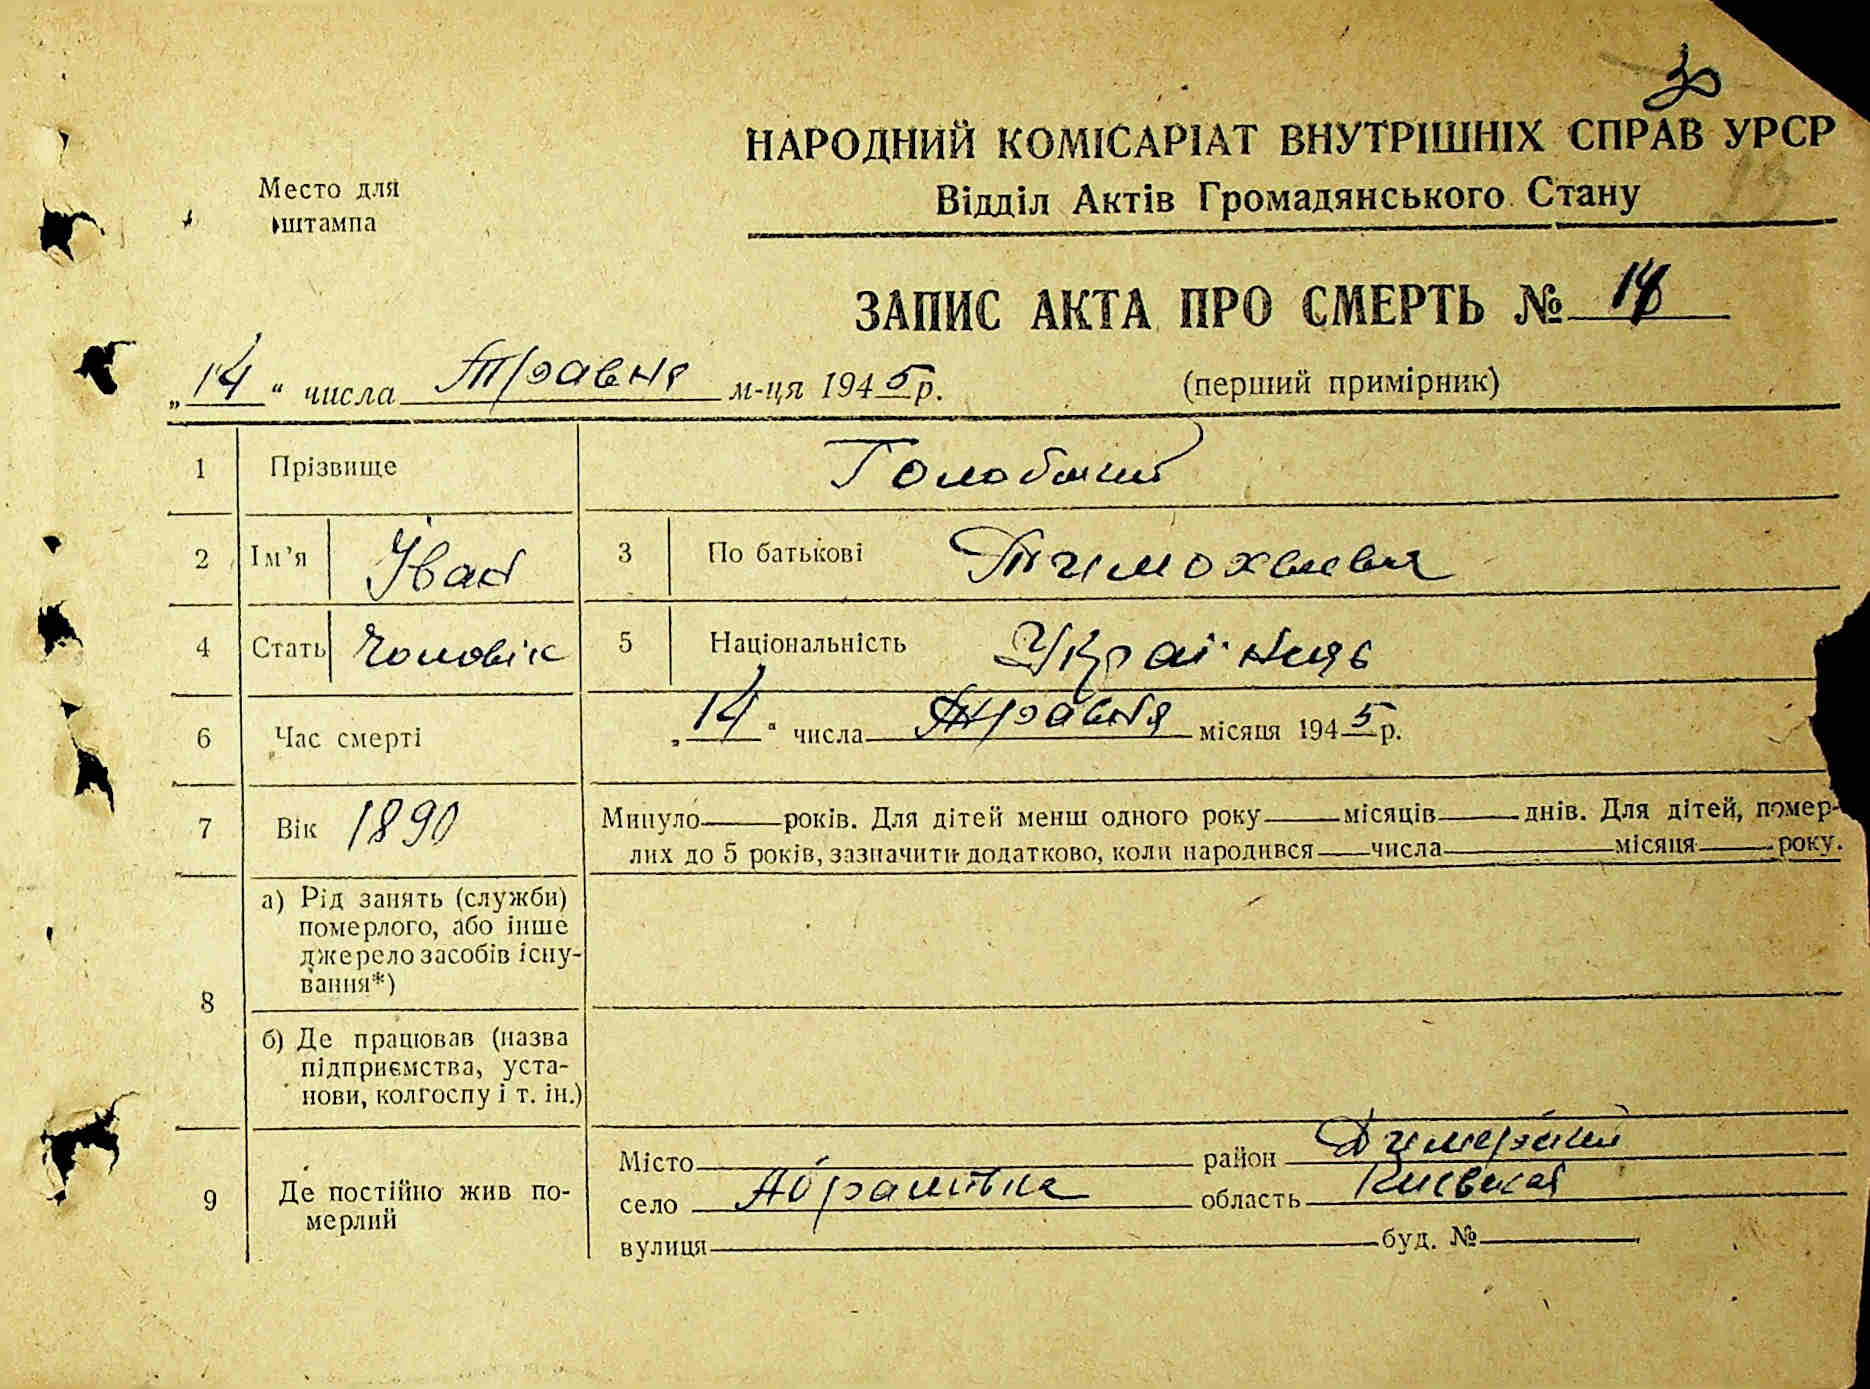 30
НАРОДНИЙ КОМІСАРІАТ ВНУТРІШНІХ СПРАВ УРСР
Відділ Актів Громадянського Стану
Место для
штампа
ЗАПИС АКТА ПРО СМЕРТЬ №
„14“ числа Травня м-ця 1945 р.
(перший примірник)
1 Прізвище
2 Ім’я Іван 3 По батькові
4 Стать Чоловік 5 Національність Українець
6 Час смерті „14“ числа Травня місяця 1945 р.
7 Вік 1890 Минуло років. Для дітей менш одного року місяців днів. Для дітей, помер-
лих до 5 років, зазначити додатково, коли народився числа місяця року.
8 а) Рід занять (служби)
померлого, або інше
джерело засобів існу-
вання*)
б) Де працював (назва
підприємства, уста-
нови, колгоспу і т. ін.)
9 Де постійно жив по-
мерлий
Місто район Димерский
село Абрамівка область Киевская
вулиця буд. №